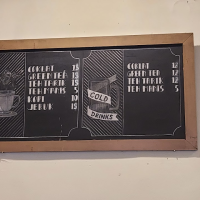 COKLAT 18
GREEN TEA 18
TEH TARIK 18
TEH MANIS 5
KOPI 10
JERUK 18
COLD
DRINKS
COKLAT 12
GREEN TEA 12
TEH TARIK 12
TEH MANIS 5